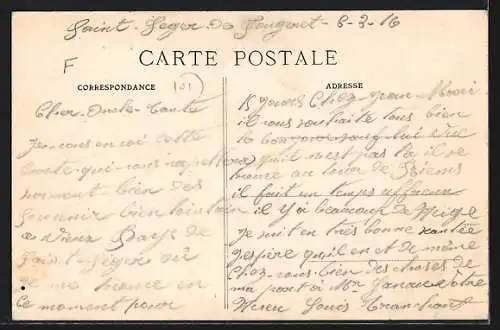 Saint-Leger de Fougeret - 6-2-16
CARTE POSTALE
F
CORRESPONDANCE
ADRESSE
Cher Oncle-Tante
Je-vous envoi cette
Carte-qui-vous-rapellera
surment-bien des
Souvenir bien lointain
ce Vieux Pays de
Saint-Leger ou
Je me trouve en
Ce moment pour
15 Jours Chez Jean-Marie
il vous souhaite tous bien
le bonjour
qu'il n'est pas là il se
trouve au tour de
il fait un temps affreux
il Y a beaucoup de neige
Je suit en très bonne santée
Jespère qu'il en et de même
Chez-vous bien des choses de
ma part à Mr votre
Neveu Louis